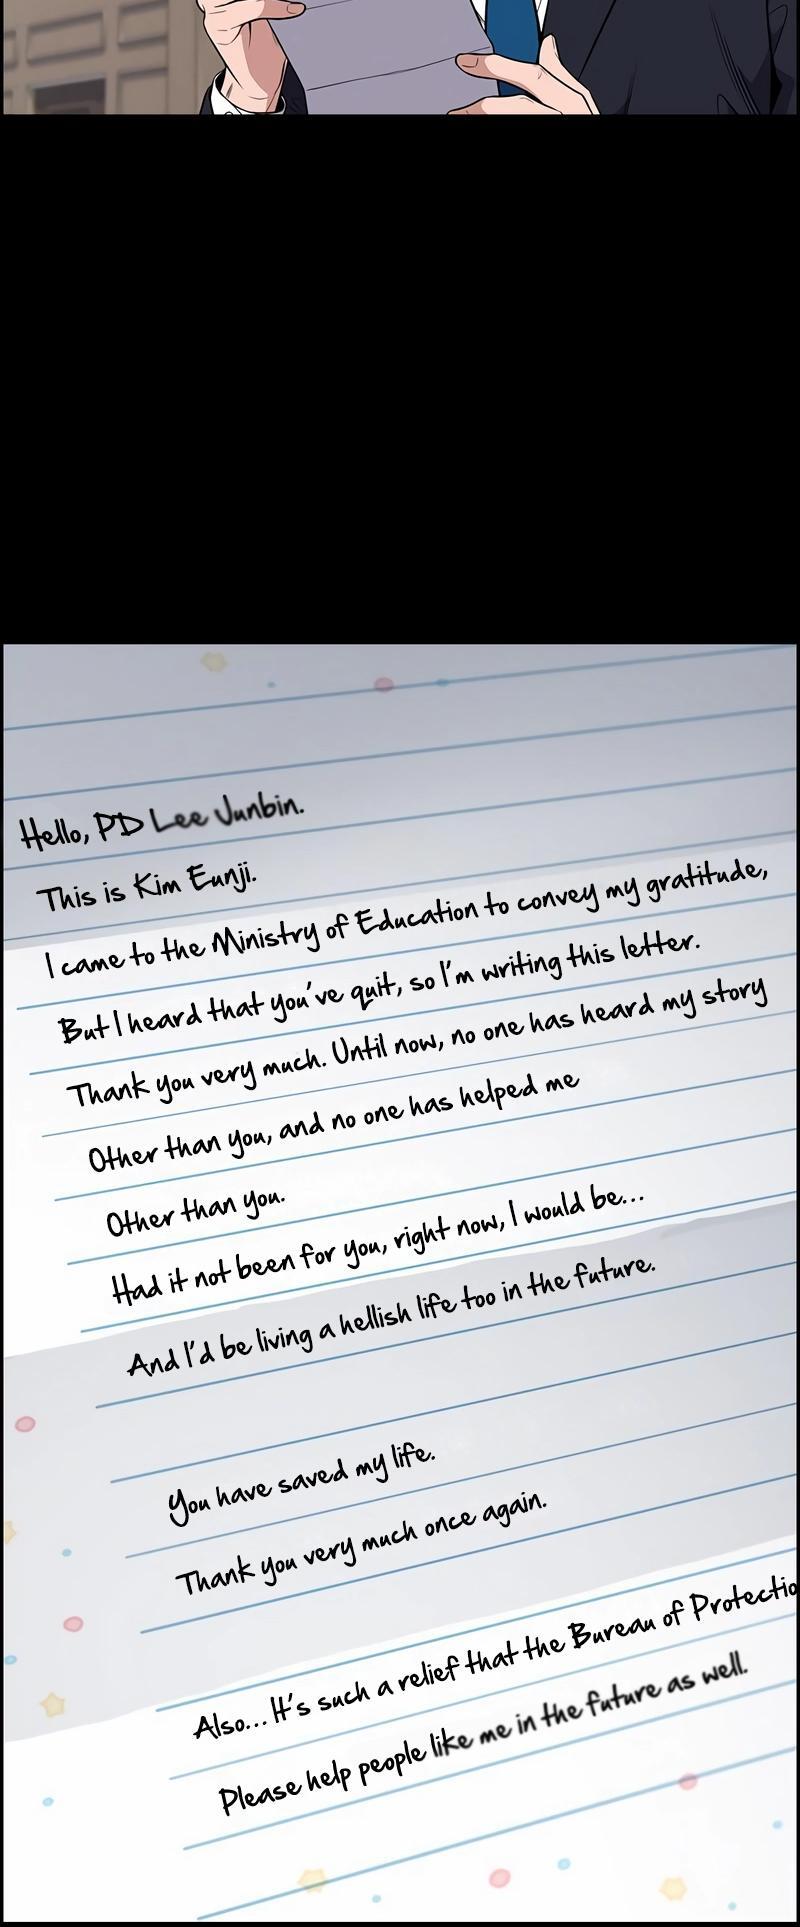 Hello, PD Lee Junbin.
This is Kim Eunji.
I came to the Ministry of Education to convey my gratitude,
But I heard that you've quit, so I'm writing this letter.
Thank you very much. Until now, no one has heard my story
Other than you, and no one has helped me
Other than you.
Had it not been for you, right now, I would be...
And I'd be living a hellish life too in the future.
You have saved my life.
Thank you very much once again.
Also... It's such a relief that the Bureau of Protectio
Please help people like me in the future as well.